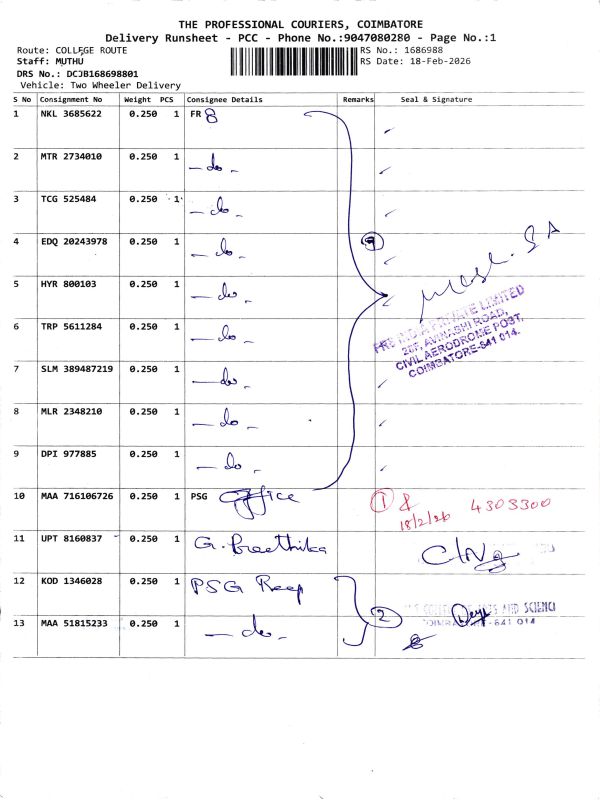 THE PROFESSIONAL COURIERS, COIMBATORE
Delivery Runsheet - PCC - Phone No.:9047080280 - Page No.:1
Route: COLLEGE ROUTE
RS No.: 1686988
Staff: MUTHU
RS Date: 18-Feb-2026
DRS No.: DCJB168698801
Vehicle: Two Wheeler Delivery
S No Consignment No Weight PCS Consignee Details Remarks Seal & Signature
1 NKL 3685622 0.250 1 FR 8
2 MTR 2734010 0.250 1 - do -
3 TCG 525484 0.250 1 - do -
4 EDQ 20243978 0.250 1 - do - 9
5 HYR 800103 0.250 1 - do -
PRIVATE LIMITED
AVINASHI ROAD,
CIVIL AERODROME POST,
COIMBATORE-641 014.
6 TRP 5611284 0.250 1 - do -
7 SLM 389487219 0.250 1 - do -
8 MLR 2348210 0.250 1 - do -
9 DPI 977885 0.250 1 - do -
10 MAA 716106726 0.250 1 PSG Office 1
18/2/26 4303300
11 UPT 8160837 0.250 1 G. Preethika
12 KOD 1346028 0.250 1 PSG Recp
2 ARTS AND SCIENCE
641 014
13 MAA 51815233 0.250 1 - do -